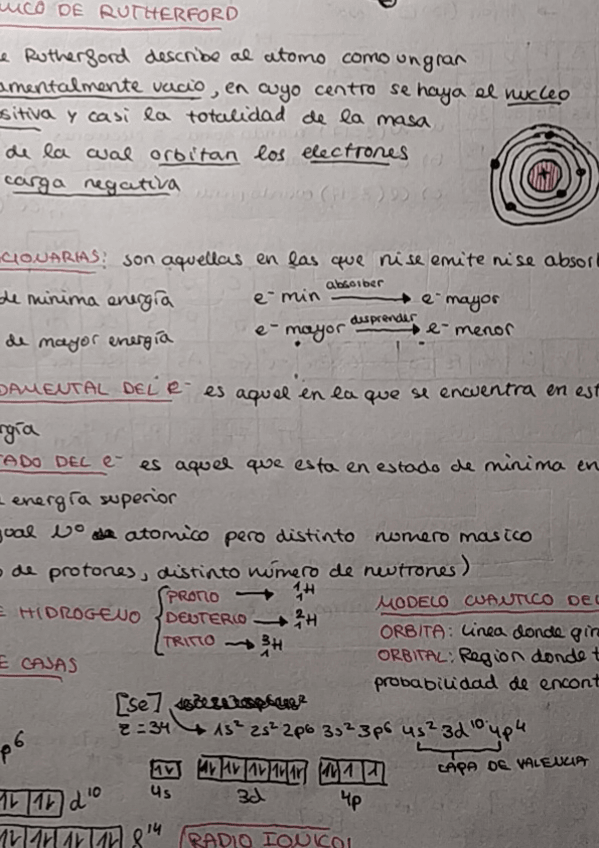 ICO DE RUTHERFORD
e Rutherford describe al atomo como un gran
amentalmente vacio, en cuyo centro se haya el nucleo
sitiva y casi la totalidad de la masa
de la cual orbitan los electrones
carga negativa
+
CIONARIAS: son aquellas en las que ni se emite ni se absor
de minima energía e⁻ min absorber → e⁻ mayor
de mayor energía e⁻ mayor desprender → e⁻ menor
DAMENTAL DEL e⁻ es aquel en la que se encuentra en est
rgía
TADO DEL e⁻ es aquel que esta en estado de minima en
energía superior
gual Nº atomico pero distinto numero masico
de protones, distinto número de neutrones)
E HIDROGENO { PROTIO → ¹₁H
DEUTERIO → ²₁H
TRITIO → ³₁H
MODELO CUANTICO DE
ORBITA: Linea donde gir
ORBITAL: Region donde
probabilidad de encont
E CAJAS
[Se]
z = 34 → 1s² 2s² 2p⁶ 3s² 3p⁶ 4s² 3d¹⁰ 4p⁴
CAPA DE VALENCIA
p⁶
4s 3d 4p
d¹⁰
f¹⁴
RADIO IONICO